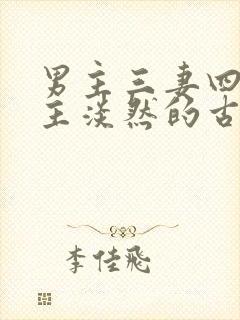 男主三妻四
主淡然的古
李佳飛